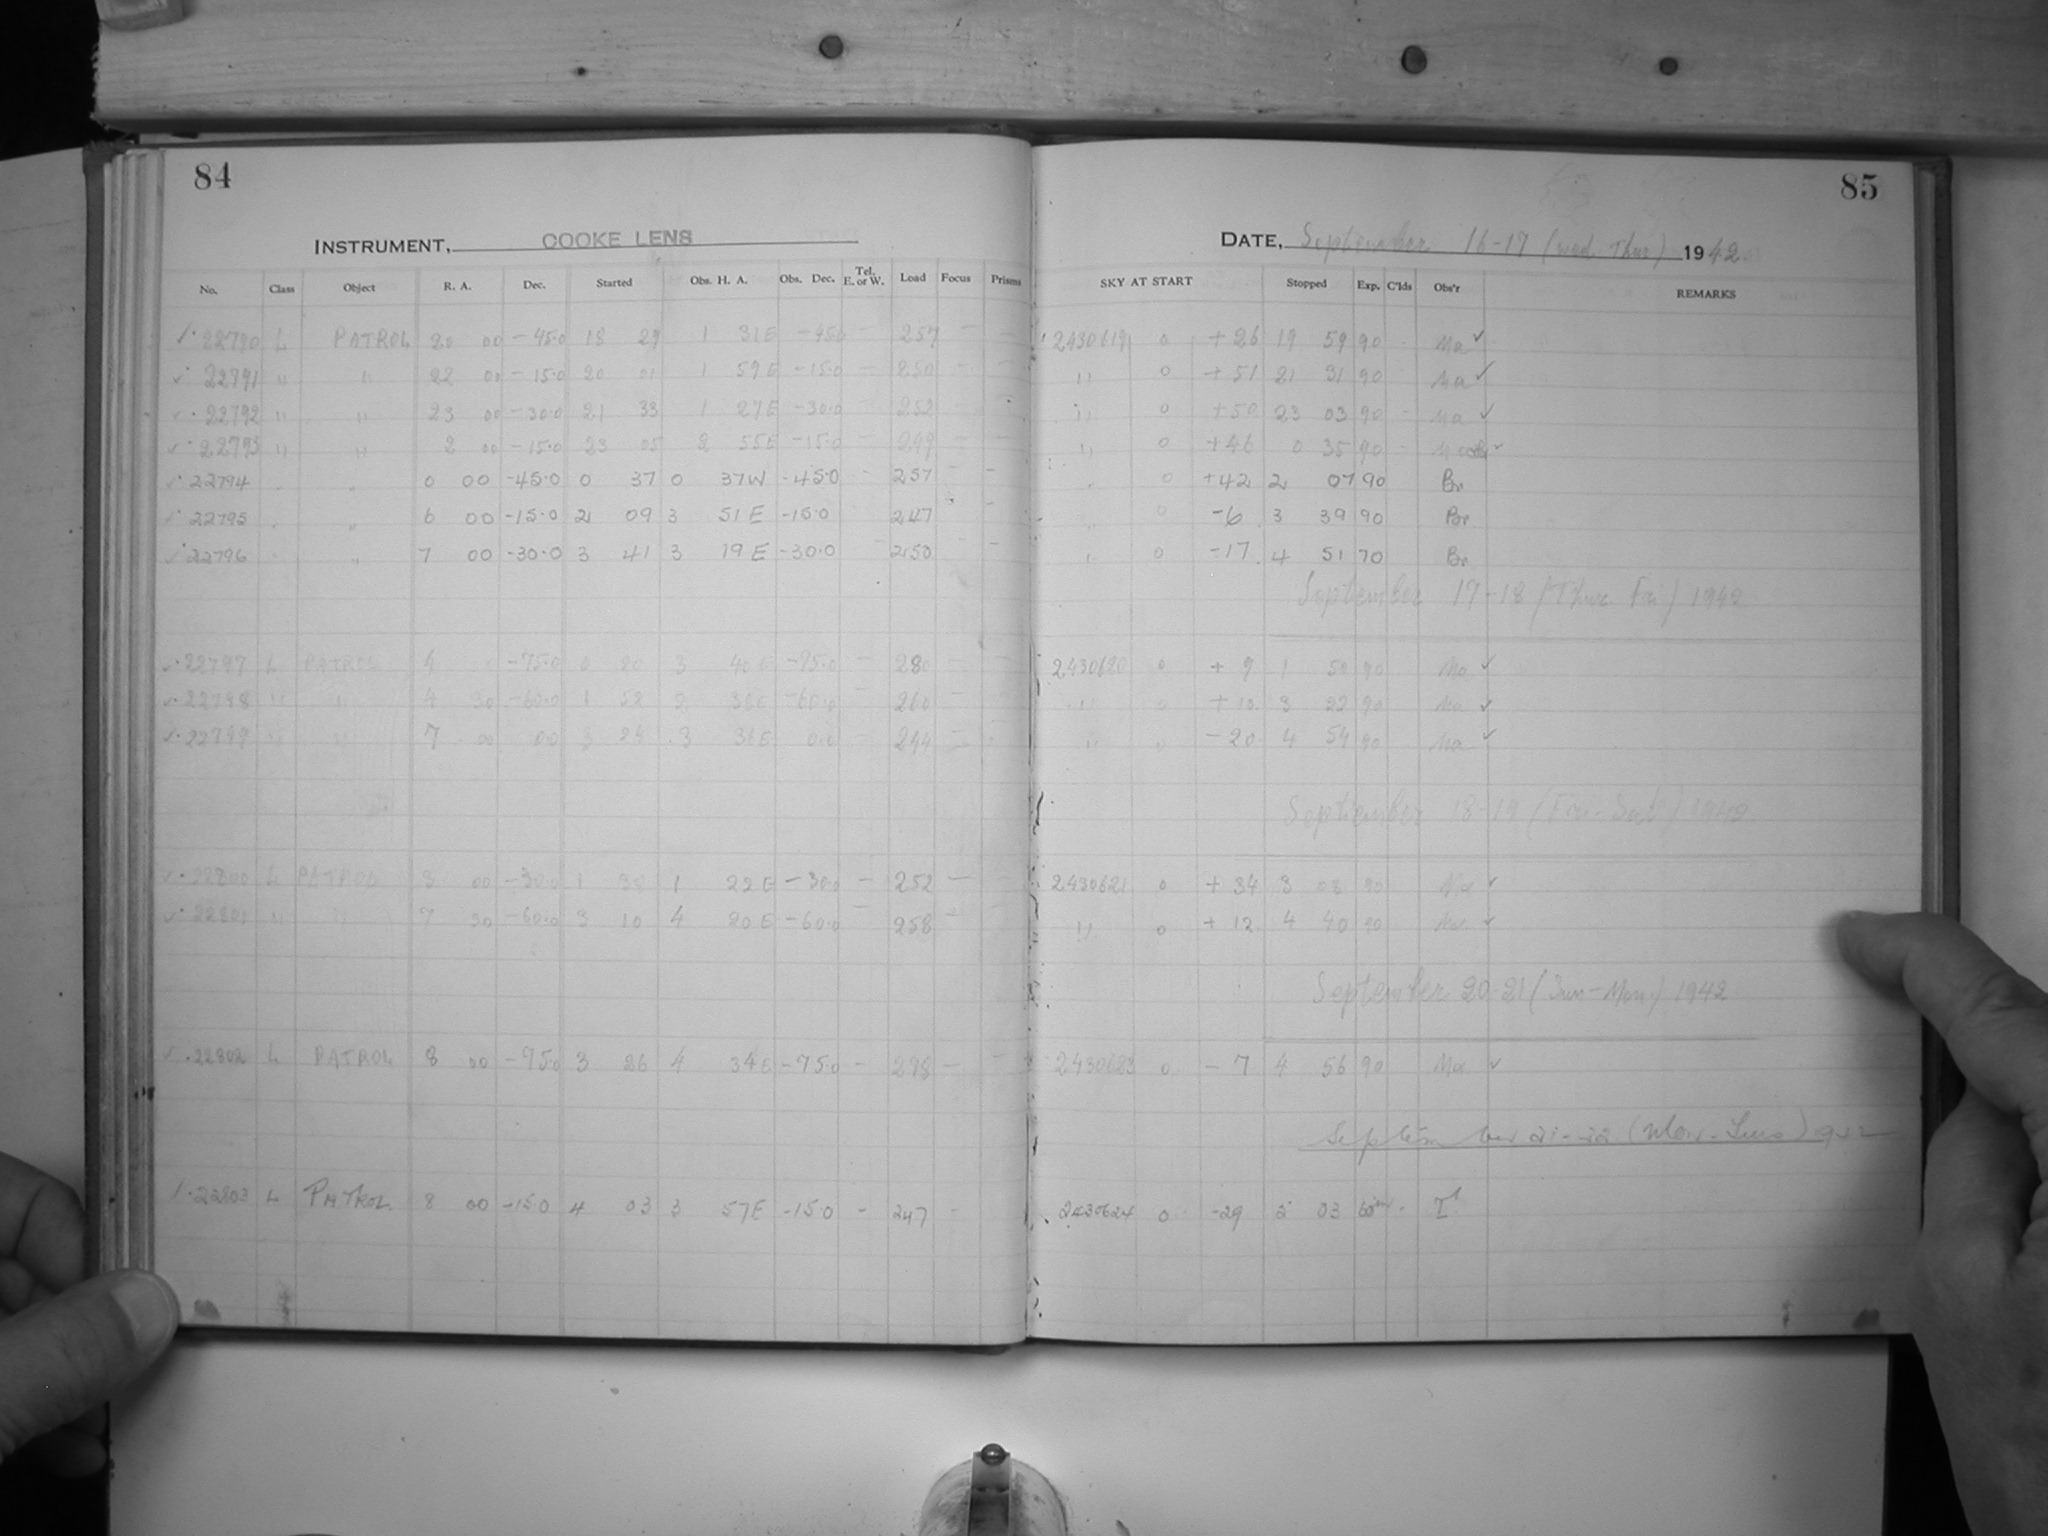 84
INSTRUMENT, COOKE LENS
No. Class Object R. A. Dec. Started Obs. H. A. Obs. Dec. Tel. E. or W. Load Focus Prisms
22790 L PATROL 20 00 -45.0 18 29 1 31E -45.0 - 257 - -
22791 " " 22 00 -15.0 20 01 1 59E -15.0 - 250 - -
22792 " " 23 00 -30.0 21 33 1 27E -30.0 - 252 - -
22793 " " 2 00 -15.0 23 05 2 55E -15.0 - 249 - -
22794 " " 0 00 -45.0 0 37 0 37W -45.0 - 257 - -
22795 " " 6 00 -15.0 2 09 3 51E -15.0 247 - -
22796 " " 7 00 -30.0 3 41 3 19E -30.0 - 250 - -
22797 L PATROL 4 0 -75.0 0 20 3 40E -75.0 - 280 - -
22798 " " 4 30 -60.0 1 52 2 38E -60.0 - 260 - -
22799 " " 7 00 00 3 24 3 36E 0.0 - 244 - -
22800 L PATROL 3 00 -30.0 1 38 1 22E -30.0 - 252 - -
22801 " " 7 30 -60.0 3 10 4 20E -60.0 - 258 -
22802 L PATROL 8 00 -75.0 3 26 4 34E -75.0 - 298 - -
22803 L PATROL 8 00 -15.0 4 03 3 57E -15.0 - 247 -
85
DATE, September 16-17 (Wed. Thur) 1942
SKY AT START Stopped Exp. C'lds Obs'r REMARKS
2430619 0 +26 19 59 90 - Ma ✓
" 0 +51 21 31 90 - Ma ✓
" 0 +50 23 03 90 - Ma ✓
" 0 +46 0 35 90 -
" 0 +42 2 07 90 Br
" 0 -6 3 39 90 Br
" 0 -17 4 51 70 Br
September 17-18 (Thur. Fri) 1942
2430620 0 +9 1 50 90 Ma ✓
" 0 +10 3 22 90 Ma ✓
" 0 -20 4 54 90 Ma ✓
September 18-19 (Fri-Sat) 1942
2430621 0 +34 3 08 90 Ma ✓
" 0 +12 4 40 90 Ma ✓
September 20-21 (Sun-Mon) 1942
2430623 0 -7 4 56 90 Ma ✓
September 21-22 (Mon-Tues) 1942
2430624 0 -29 5 03 60m -